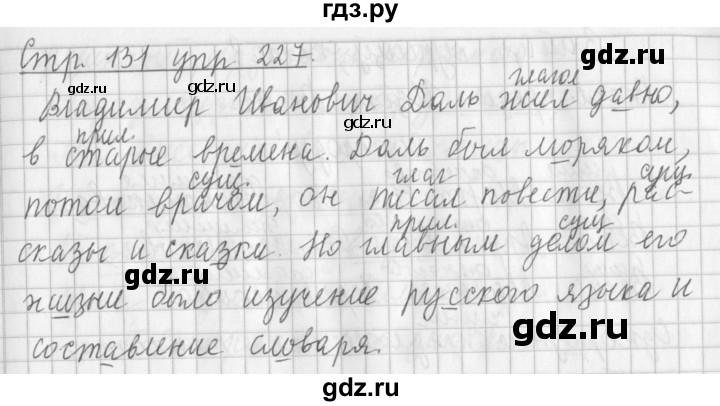 гдз.ру
Стр. 131 упр 227.
gdz.ru
gdz.ru
глагол
Владимир Иванович Даль жил давно,
gdz.ru
прил.
в старые времена. Даль был моряком,
gdz.ru
сущ. глаг сущ.
потом врачом, он писал повести, рас-
прил. сущ
сказы и сказки. Но главным делом его
gdz.ru
жизни было изучение русского языка и
gdz.ru
составление словаря.
gdz.ru